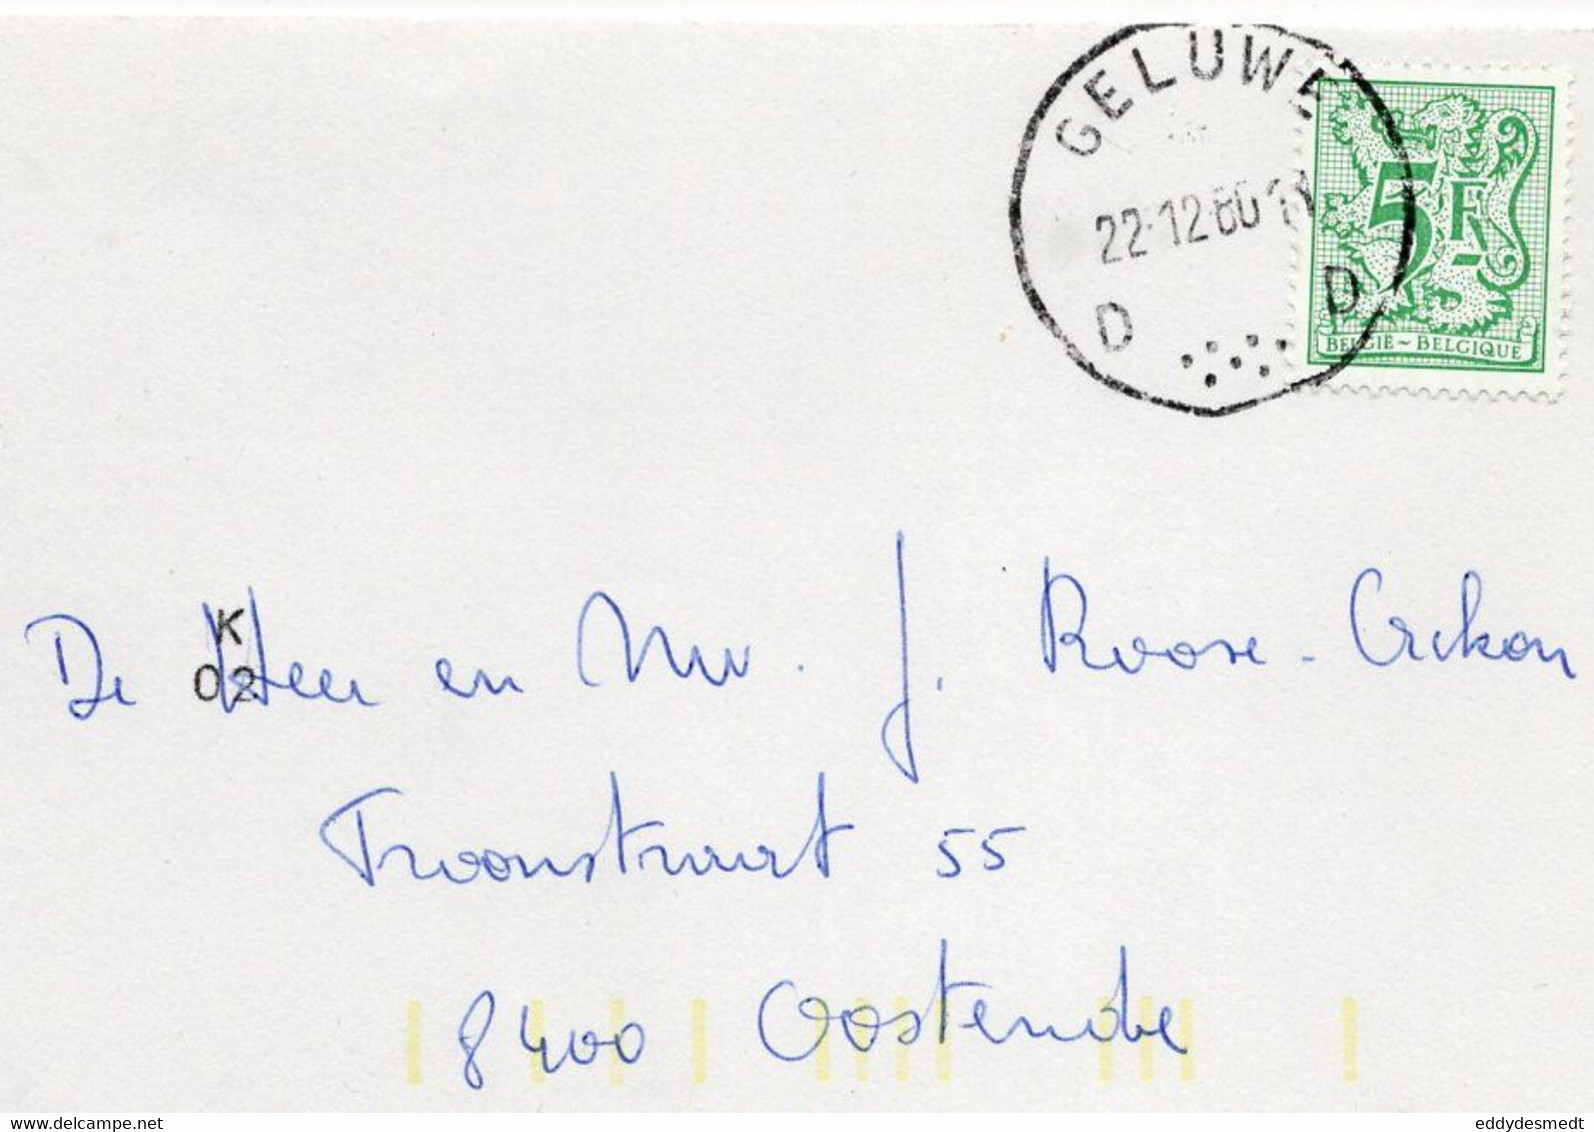 GELUWE
22-12-80
D D
5F
BELGIË ~ BELGIQUE
K
02
De Heer en Mw. J. Roose - Crikon
Troonstraat 55
8400 Oostende
www.delcampe.net
eddydesmedt